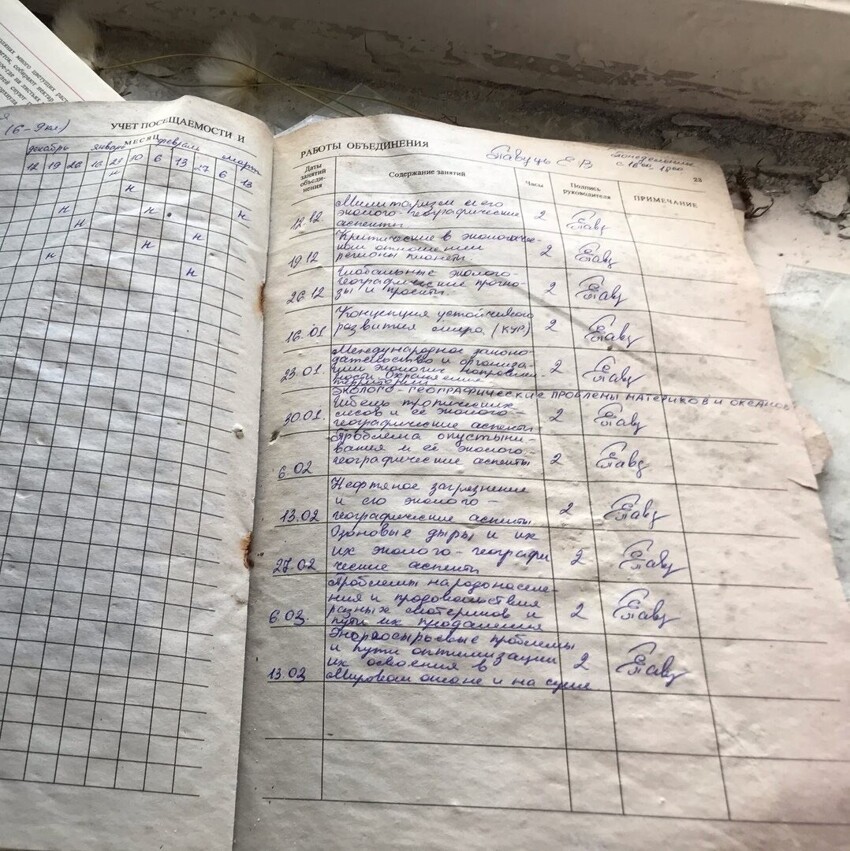 (6-9кл)
УЧЕТ ПОСЕЩАЕМОСТИ И
МЕСЯЦ
декабрь январь февраль март
12 19 26 16 21 10 6 13 27 6 13
н
н
н н
н н
н н
н н
РАБОТЫ ОБЪЕДИНЕНИЯ
Главуць Е.В
понедельник
23
Даты занятий объеди-нения
Содержание занятий
Часы
Подпись руководителя
ПРИМЕЧАНИЕ
12.12 Милитаризм и его
эколого-географические
аспекты 2
19.12 Критические в экологиче-
ском отношении
регионы планеты. 2
26.12 Глобальные эколого-
географические прогно-
зы и проекты. 2
16.01 Концепция устойчивого
развития мира. (КУР) 2
23.01. Международное законо-
дательство и организа-
ции экологич. направлен-
ности. Охраняемые
территории 2
ЭКОЛОГО-ГЕОГРАФИЧЕСКИЕ ПРОБЛЕМЫ МАТЕРИКОВ И ОКЕАНОВ
30.01. Гибель тропических
лесов и её эколого-
географические аспекты 2
6.02 Проблема опустыни-
вания и её эколого-
географические аспекты 2
13.02 Нефтяное загрязнение
и его эколого-
географические аспекты. 2
27.02 Озоновые дыры и их
их эколого-географи
ческие аспекты 2
6.03. Проблемы народонаселе-
ния и продовольствия
разных материков и
пути их преодоления 2
13.03 Энергосырьевые проблемы
и пути оптимизации
их освоения в
Мировом океане и на суше 2